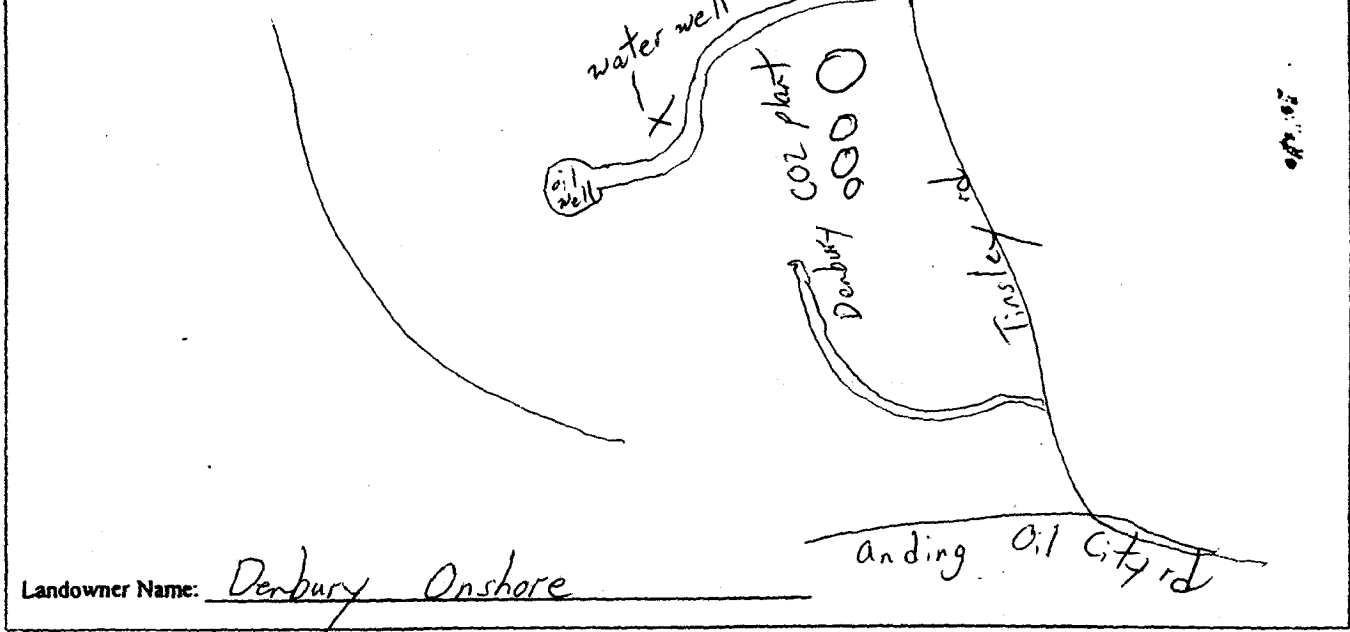 water well
oil
well
Denbury CO2 plant
Tinsley rd
anding Oil City rd
Landowner Name: Denbury Onshore